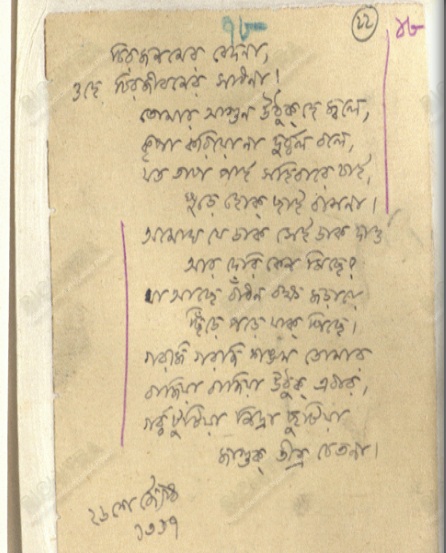 ২৮
22
৯৮
চিরজনমের বেদনা,
ওহে চিরজীবনের সাধনা!
তোমার আগুন উঠুক হে জ্বলে,
কৃপা করিয়ো না দুর্ব্বল বলে,
যত তাপ পাই সহিবারে চাই,
পুড়ে হোক্ ছাই বাসনা।
অমোঘ যে ডাক সেই ডাক দাও
আর দেরি কেন মিছে?
যা আছে বাঁধন বক্ষ জড়ায়ে
ছিঁড়ে পড়ে যাক পিছে।
গরজি গরজি শঙ্খ তোমার
বাজিয়া বাজিয়া উঠুক এবার,
গর্ব্ব টুটিয়া নিদ্রা ছুটিয়া
জাগুক তীব্র চেতনা।
২৬শে জ্যৈষ্ঠ
১৩১৭